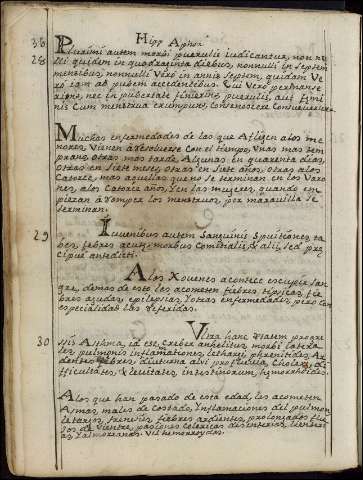 Hipp Aphor
38 Plurimi autem morbi puerulis iudicantur, non nu
28 lli quidem in quadraginta diebus, nonnulli in septem
mensibus, nonnulli Vero in annis septem, quidam Ve
ro iam ad pubem accedentibus. Qui Vero permanse
rint, nec in pubertate finierint, puerulis, aut fimi
nis cum menstrua erumpunt, consenescere consueuerunt.
Muchas enfermedades de las que Afligen alos me
nores, Vienen à resolverse con el tiempo, Unas mas tem
prano, otras mas tarde. Algunas en quarenta dias,
otras en siete meses, otras en siete años, otras alos
Catorce, mas aquellas que no se terminan en los Varo
nes, alos Catorce años, y en las mujeres, quando em
piezan à romper los menstruos, por maravilla se
terminan.
29 Iuvenibus autem Sanguinis Sputiones, ta
bes, febres acut. morbus Comitialis, & alii, sed pre
cipue antedicti.
Alos Xovenes acontece escupir san
gre, demas de esto les acometen fiebres tisicas, fie
bres agudas, epilepsias, Y otras enfermedades, pero con
especialidad las referidas.
Ultra hanc etatem progre
30 ssis Asthma, id est, creber anhelitus, morbi latera
les, pulmonis inflamationes, lethargi, phrenitides, Ar
dentes febres, diuturna alvi profluvia, Cholera, di
fficultates, & levitates, intestinorum, hemorrhoides.
Alos que han pasado de esta edad, les acometen
Asmas, males de costado, Ynflamaciones del pulmon,
letargos, frenesies, fiebres ardientes, prolongados flu
xos de Vientre, pasiones colericas, desinterias, lienteri
as, Y almorranas. Vel hemorroydas.